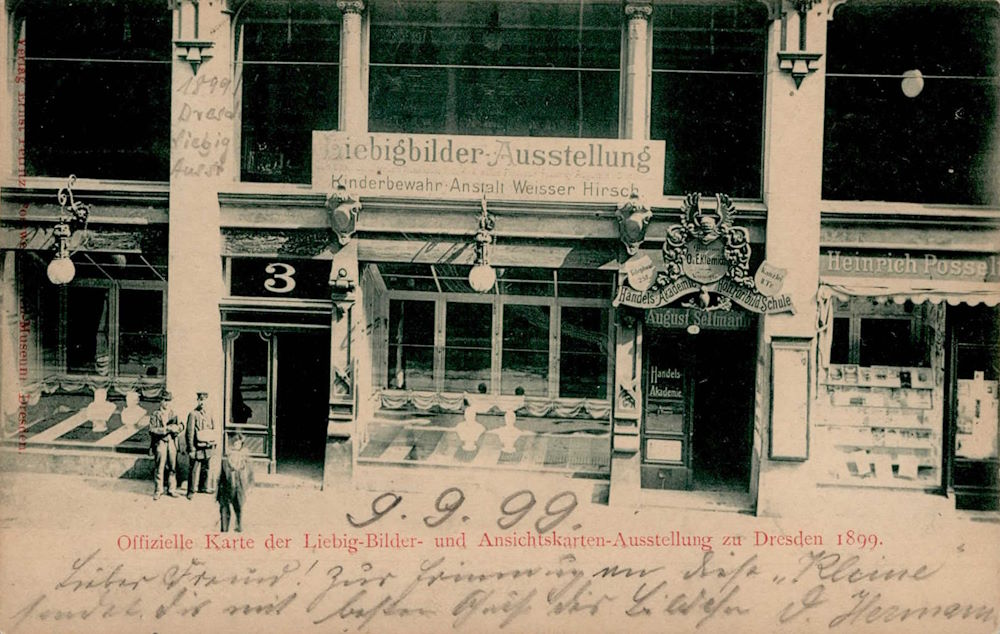 1899
Dresd
Liebig
Ausst
Liebigbilder-Ausstellung
Kinderbewahr-Anstalt Weisser Hirsch
3
O.E.Klemich
Handels Akademie
Schule
August Sellmann
Handels-
Akademie
Heinrich Possel
Verlag Ernst
Museum, Dresden
9. 9. 99.
Offizielle Karte der Liebig-Bilder- und Ansichtskarten-Ausstellung zu Dresden 1899.
Lieber Freund! Zur Erinnerung an diese „Kleine“
sendet dir mit besten Gruß